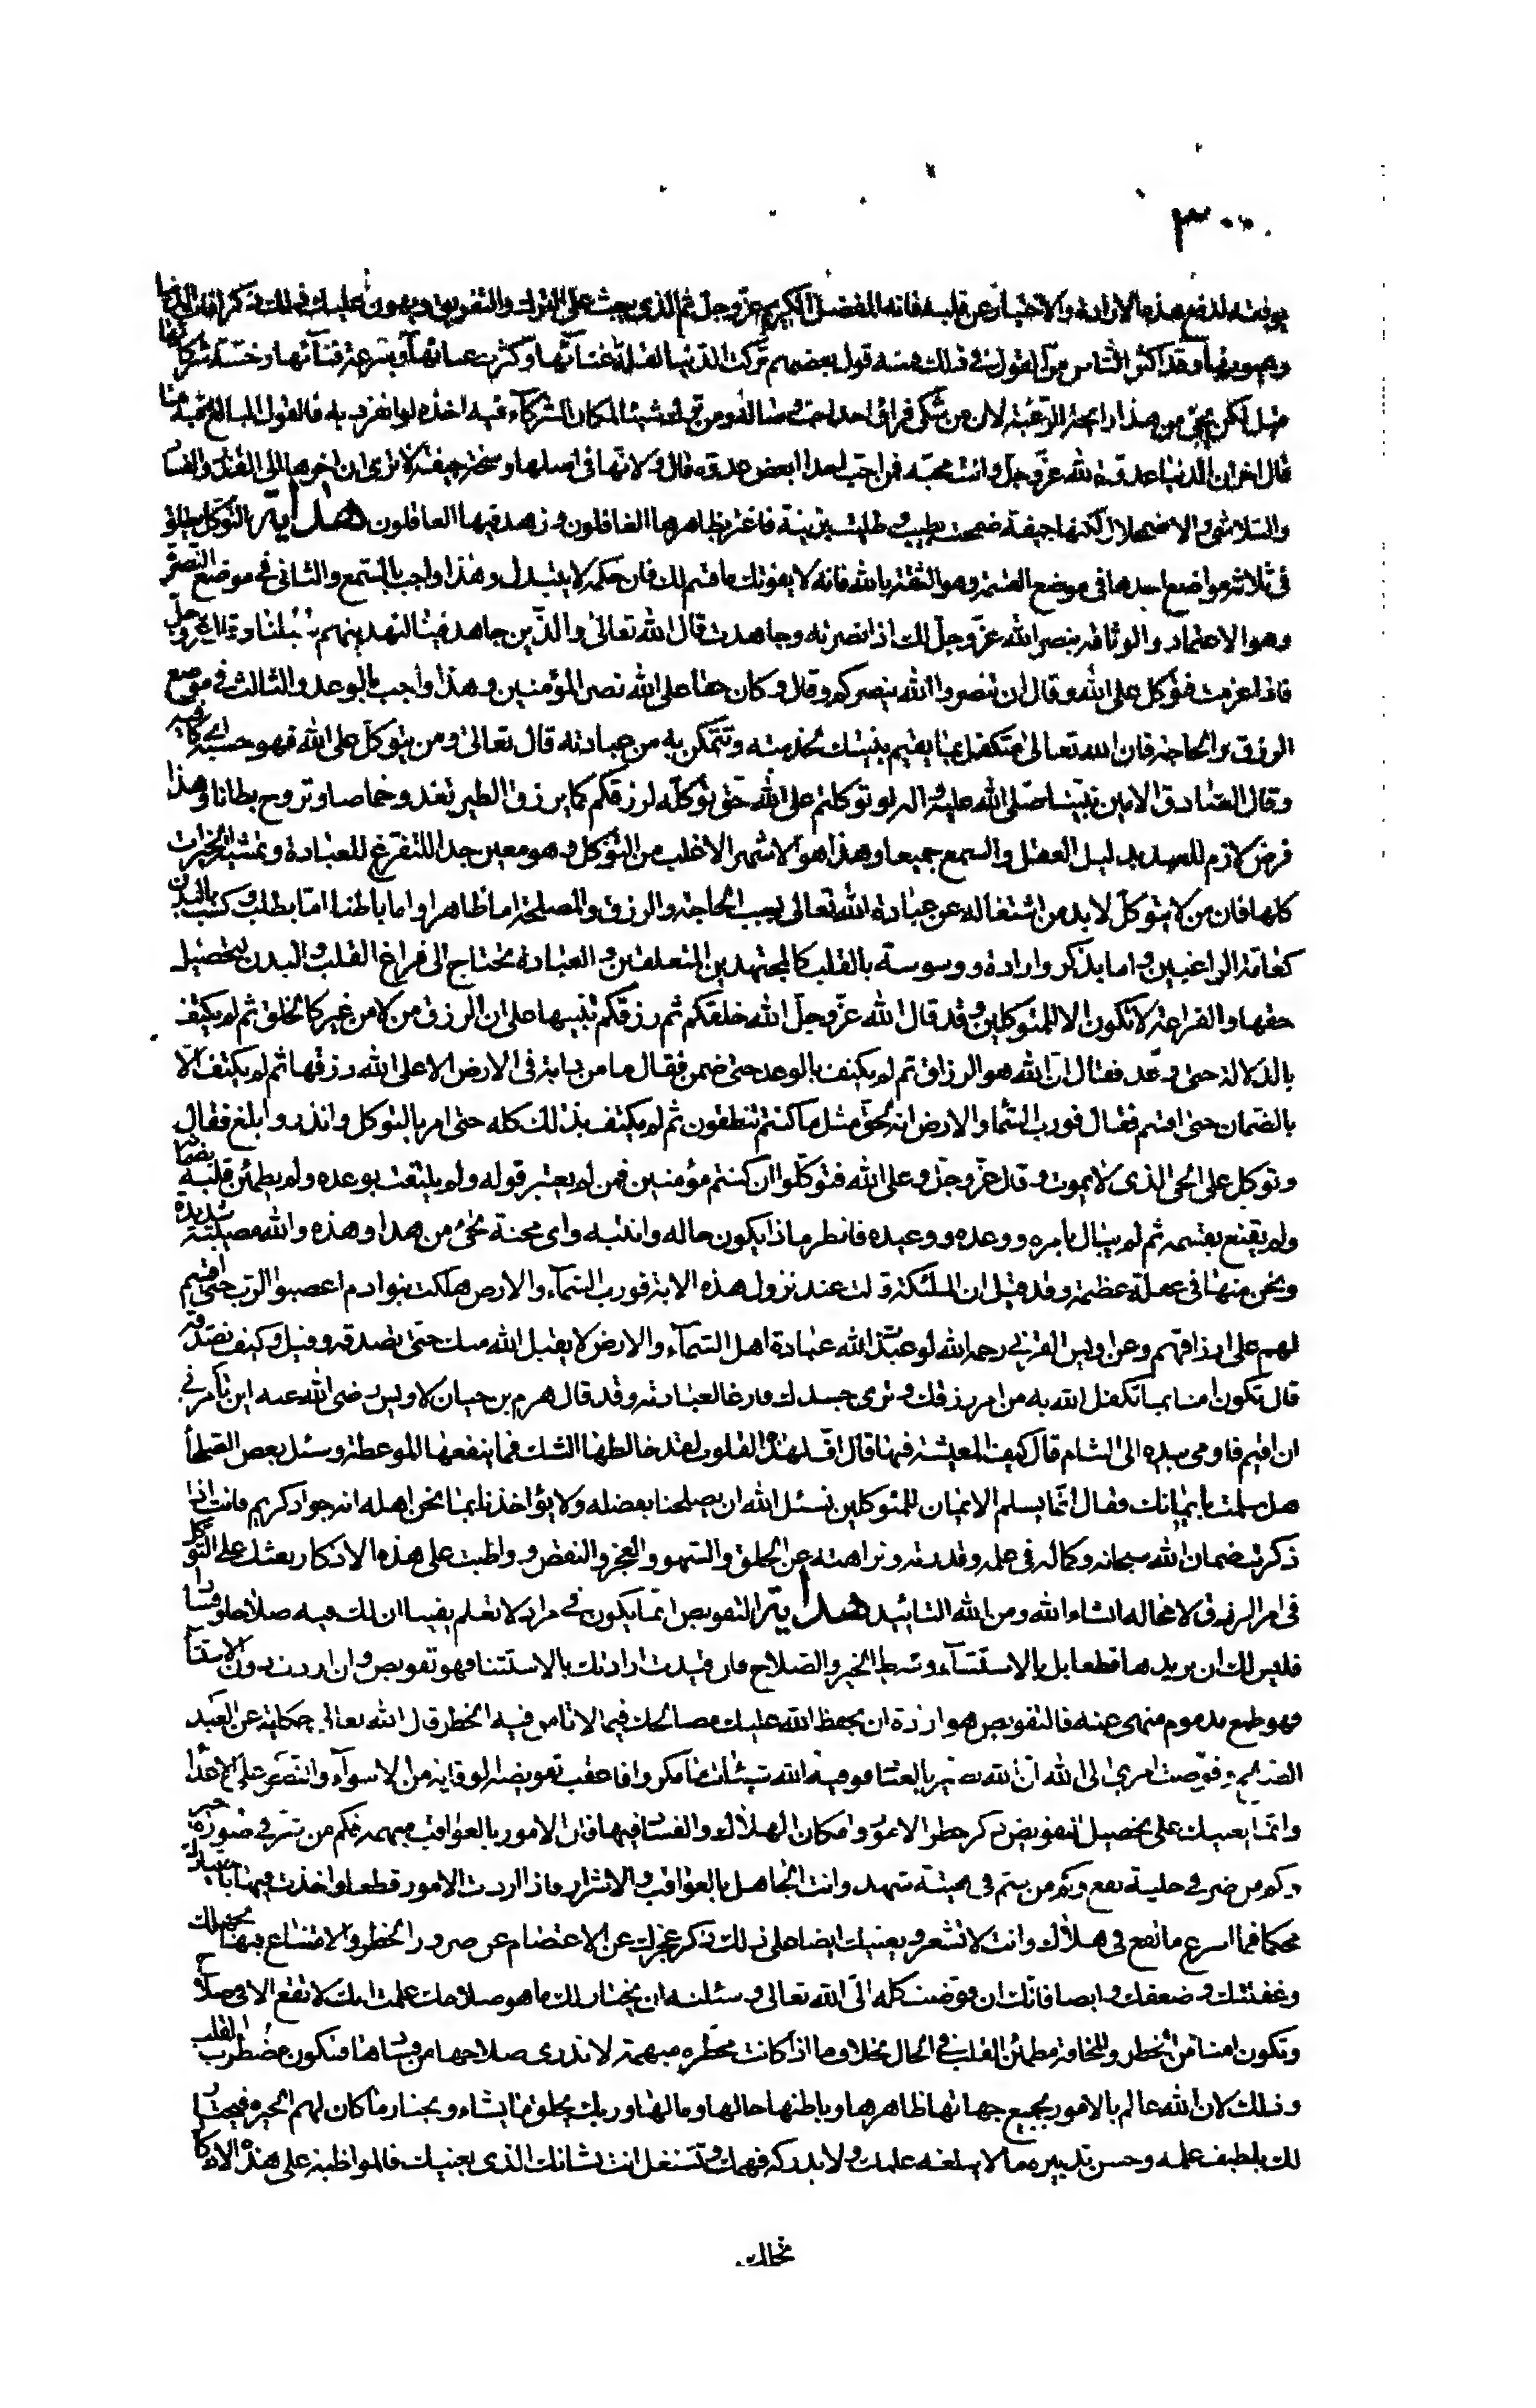 ٣٠٠
يوفقه لدفع هذه الارادة والاختيار عن قلبه فانه المفضل الكريم عزّ وجلّ ثم الذى يبعث على الترك والتفريق ويهون عليك ذلك ذكر افات الدنيا
وعيوبها وقد اكثر الناس من القول فى ذلك فمنه قول بعضهم تركت الدنيا لقلة غنائها وكثرة عنائها وسرعة فنائها وخسّة شركائها
قيل لكن يجئ من هذا رايحة الرغبة لان من شكى فراق احد احب وصاله ومن ترك شيئا لمكان الشركاء فيه اخذه لو انفرد به فالقول البالغ فيه ما
قال اخر ان الدنيا عدوة الله عزّ وجلّ وانت محبّه فمن احبّ احدا ابغض عدوّه قال ولانها فى اصلها وسخة جيفة الا ترى ان اخرها الى القذر والفساد
والتلاشى والاضمحلال لكنها جيفة ضمخت بطيب وطليت بزينة فاغتر بظاهرها الغافلون وزهد فيها العاقلون هداية التوكل يطلق
فى ثلاثة مواضع احدها فى موضع القسمة وهو الثقة بالله فانه لا يفوتك ما قسم لك فان حكمه لا يتبدل وهذا واجب بالسمع والثانى فى موضع النصرة
وهو الاعتماد والوثاقة بنصر الله عزّ وجلّ لك اذا نصرته وجاهدت قال الله تعالى والذين جاهدوا فينا لنهدينهم سبلنا وقال عزّ وجلّ
فاذا عزمت فتوكل على الله وقال ان تنصروا الله ينصركم وقال وكان حقا على الله نصر المؤمنين وهذا واجب بالوعد والثالث فى موضع
الرزق والحاجة فان الله تعالى متكفل بما يقيم بنيتك لخدمته وتتمكن به من عبادته قال تعالى ومن يتوكل على الله فهو حسبه
وقال الصادق الامين نبينا صلى الله عليه واله لو توكلتم على الله حق توكله لرزقكم كما يرزق الطير تغدو خماصا وتروح بطانا وهذا
فرض لازم للعبد بدليل العقل والسمع جميعا وهذا هو الاشهر الاغلب من التوكل وهو معين جدا للتفرغ للعبادة وتمشية الخيرات
كلها فان من لا يتوكل لا بد من اشتغاله عن عبادة الله تعالى بسبب الحاجة والرزق والمصلحة اما ظاهرا واما باطنا اما بطلب وكسب بالبدن
كعامة الراغبين واما بذكر وارادة ووسوسة بالقلب كالمجتهدين المتعلقين والعبادة تحتاج الى فراغ القلب والبدن ليحصل
حقها والفراغة لا تكون الا للمتوكلين وقد قال الله عزّ وجلّ الله خلقكم ثم رزقكم تنبيها على ان الرزق من لا من غيره كالخلق ثم لم يكتف
بالدلالة حتى وعد فقال ان الله هو الرزاق ثم لم يكتف بالوعد حتى ضمن فقال ما من دابة فى الارض الا على الله رزقها ثم لم يكتف
بالضمان حتى اقسم فقال فورب السماء والارض انه لحق مثل ما انكم تنطقون ثم لم يكتف بذلك كله حتى امر بالتوكل وانذر وابلغ فقال
وتوكل على الحى الذى لا يموت وقال عزّ وجلّ وعلى الله فتوكلوا ان كنتم مؤمنين فمن لم يعتبر قوله ولم يلتفت بوعده ولم يطمئن قلبه بضمانه
ولم يقنع بقسمه ثم لم يبال بامره ووعده ووعيده فانظر ماذا يكون حاله وانتبه واى محنة تجئ من هذا وهذه والله مصيبة شديدة
ونحن منها فى غفلة عظيمة وقد قيل ان الملئكة قالت عند نزول هذه الاية فورب السماء والارض هلكت بنو ادم اغضبوا الرب حتى اقسم
لهم على ارزاقهم وعن اويس القرنى رحمه الله لو عبدت الله عبادة اهل السماء والارض لا يقبل الله منك حتى تصدقه وقيل وكيف نصدقه
قال تكون امنا بما تكفل الله به من امر رزقك وترى جسدك فارغا لعبادته وقد قال هرم بن حيان لاويس رضى الله عنه اين تأمرنى
ان اقيم فاومى بيده الى الشام قال كيف المعيشة فيها قال اف لهذه القلوب لقد خالطها الشك فما ينفعها الموعظة وسئل بعض العلماء
هل سلمت بايمانك فقال انما يسلم الايمان للمتوكلين نسئل الله ان يصلحنا بفضله ولا يؤاخذنا بما نحن اهله انه جواد كريم فانت اذا
ذكرت ضمان الله سبحانه وكماله فى علمه وقدرته ونزاهته عن الخلف والسهو والعجز والنقص وواظبت على هذه الاذكار بعثك على التوكل
فى امر الرزق لا محالة انشاء الله ومن الله التائيد هداية التفويض انما يكون فى مراد لا تعلم يقينا ان لك فيه صلاحا وفسادا
فليس لك ان تريدها قطعا بل بالاستثناء وشرط الخير والصلاح فان قيدت ارادتك بالاستثنا فهو تفويض وان اردت دون الاستثناء
فهو طمع مذموم منهى عنه فالتفويض هو ارادة ان يحفظ الله عليك مصالحك فيما لا تامن فيه الخطر قال الله تعالى حكاية عن العبد
الصالح وفوضت امرى الى الله ان الله بصير بالعباد فوقيه الله سيئات ما مكروا فاعقب تفويضه الوقاية من الاسواء والنصر على الاعداء
وانما يعينك على تحصيل التفويض ذكر خطر الامور وامكان الهلاك والفساد فيها فان الامور بالعواقب مبهمة فكم من شر فى صورة خير
وكم من ضر فى حلية نفع وكم من سم فى هيئة شهد وانت الجاهل بالعواقب والاسرار فاذا اردت الامور قطعا واخذت فيها باختيارك
محكما فما اسرع ما تقع فى هلاك وانت لا تشعر ويعينك ايضا على ذلك ذكر عجزك عن الاعتصام عن ضرور الخطر والامتناع فيها لجهلك
وغفلتك وضعفك وايضا فانك ان فوضت كله الى الله تعالى وسئلته ان يختار لك ما هو صلاحك علمت انك لا تقع الا فى صلاح
وتكون امنا من الخطر والمخافة مطمئن القلب فى الحال بخلاف ما اذا كانت مخطرة مبهمة لا تدرى صلاحها من فسادها فتكون مضطرب القلب
وذلك لان الله عالم بالامور بجميع جهاتها ظاهرها وباطنها حالها ومالها وربك يخلق ما يشاء ويختار ما كان لهم الخيرة فيختار
لك بلطيف علمه وحسن تدبيره ما لا يبلغه علمك ولا يدركه فهمك وتشتغل انت بشانك الذى يعنيك فالمواظبة على هذه الاذكار